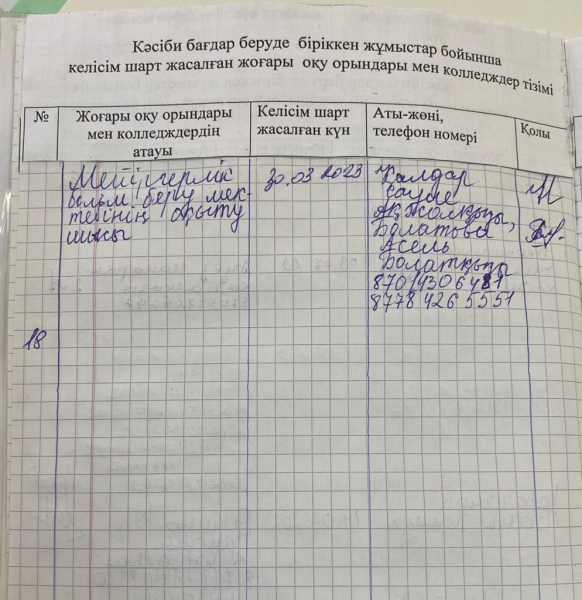 Кәсіби бағдар беруде біріккен жұмыстар бойынша
келісім шарт жасалған жоғары оқу орындары мен колледждер тізімі
№
Жоғары оқу орындары
мен колледждердің
атауы
Келісім шарт
жасалған күн
Аты-жөні,
телефон номері
Қолы
Мейіргерлік
білім беру мек-
тебінің оқыту
шысы
30.03 2023
Қалдар
Сәуле
Ақжолқызы,
Болатова
Асель
Болатқызы
87014306481
8778 426 5551
18